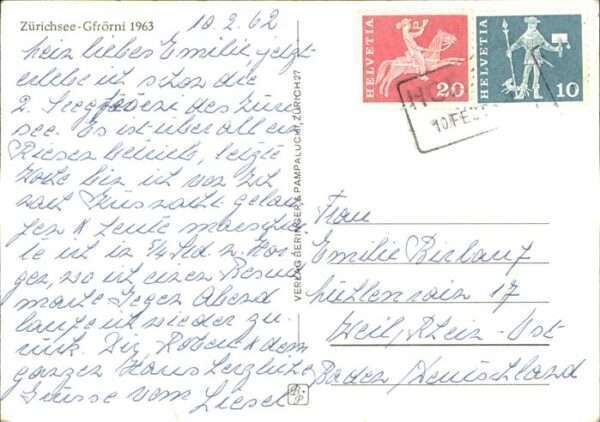 Zürichsee-Gfrörni 1963
10.2.62
Mein liebes Emilie, jetzt
erlebe ich schon die
2. Seegfrörne des Züri-
see. Es ist überall ein
Riesen betrieb, letzte
Woche bin ich von
nach Küsnacht gelau-
fen & heute marschier
te ich in 5/4 Std. n. Hor-
gen, wo ich einen Besuch
machte. Gegen Abend
laufe ich wieder zu-
rück. Dir, Robert & dem
ganzen Haus herzliche
Grüsse vom Liesel
VERLAG BERINGER & PAMPALUCHI, ZÜRICH 27
HELVETIA 20
HELVETIA 10
10. FEB.
Frau
Emilie Birlauf
Mühlenrain 17
Weil, Rhein-Ost
Baden/Deutschland